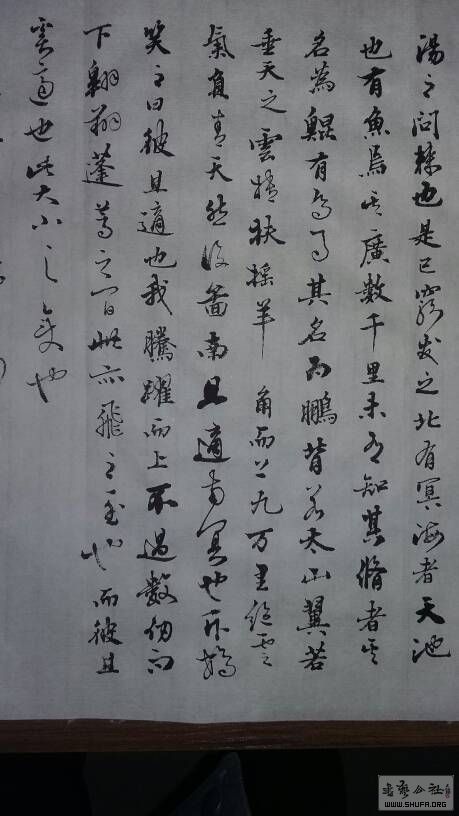 湯之問棘也是已窮发之北有冥海者天池
也有魚焉其廣數千里未有知其脩者其
名為鯤有鳥焉其名為鵬背若太山翼若
垂天之雲摶扶搖羊角而上九万里絕雲
氣負青天然後圖南且適南冥也斥鴳
笑之曰彼且適也我騰躍而上不過數仞而
下翱翔蓬蒿之間此亦飛之至也而彼且
奚適也此大小之也
書藝公社
WWW.SHUFA.ORG